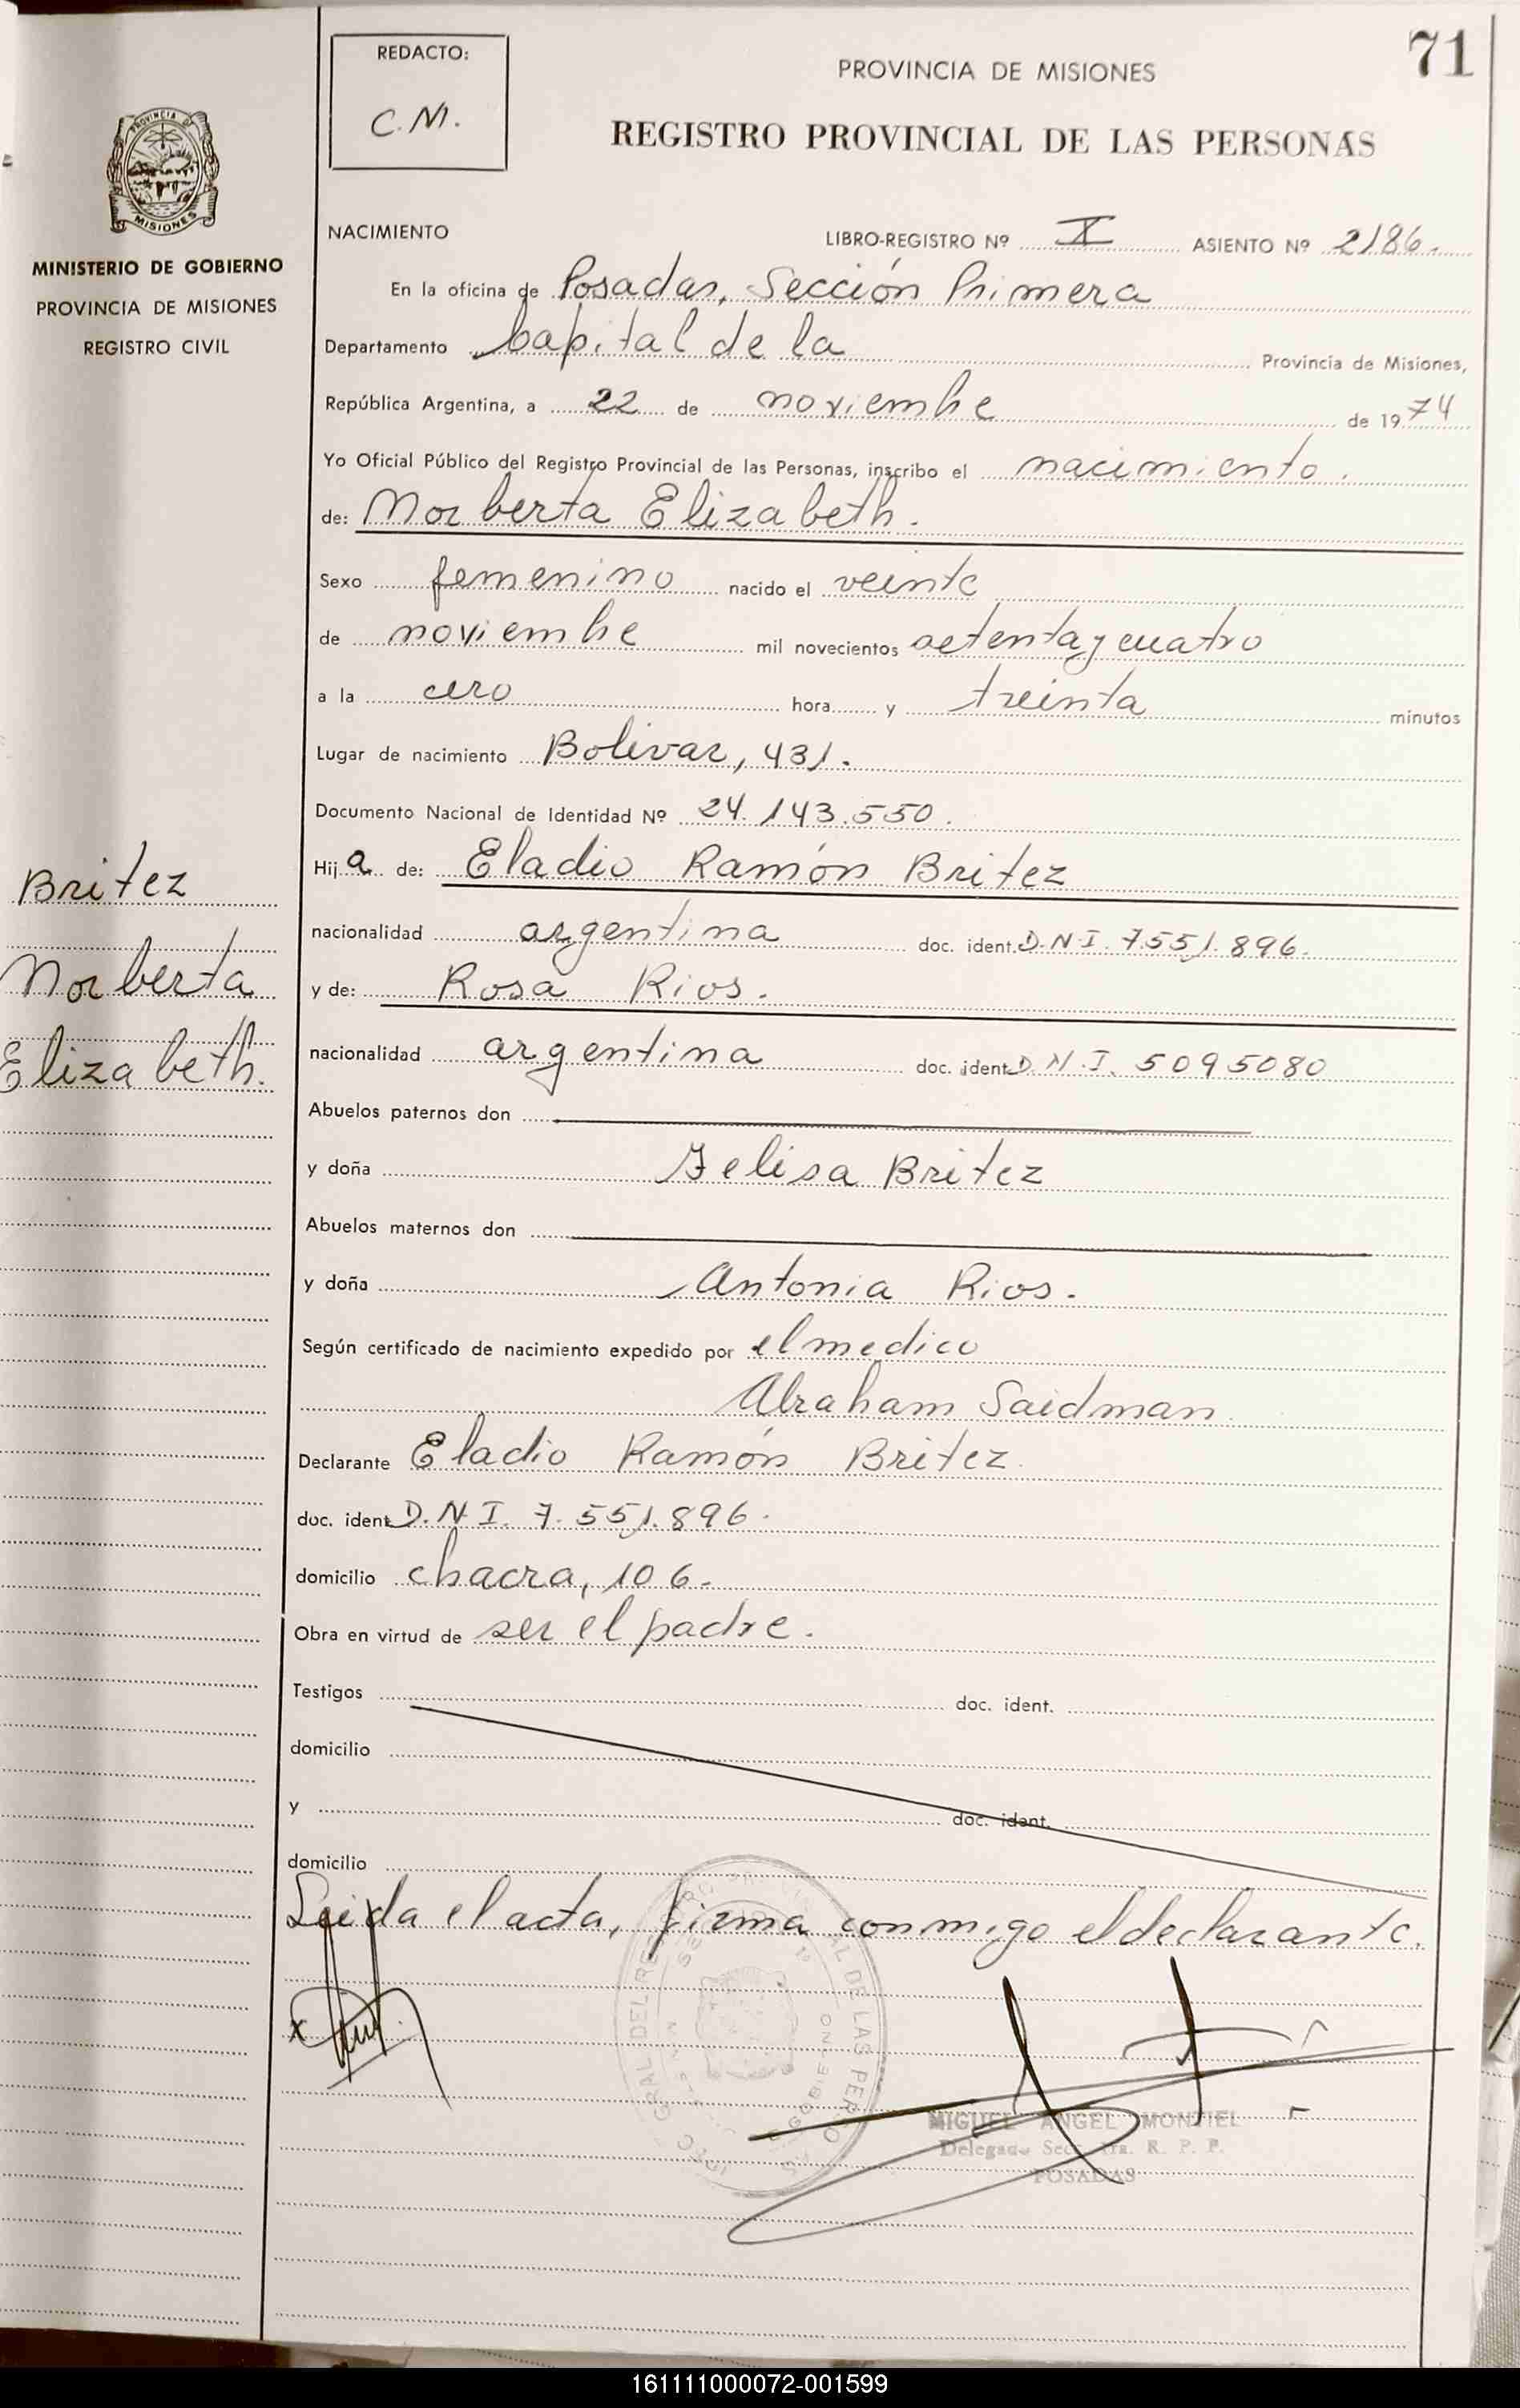 71
REDACTO:
C.M.
PROVINCIA DE MISIONES
REGISTRO PROVINCIAL DE LAS PERSONAS
PROVINCIA DE
MISIONES
MINISTERIO DE GOBIERNO
PROVINCIA DE MISIONES
REGISTRO CIVIL
NACIMIENTO LIBRO-REGISTRO Nº X ASIENTO Nº 2186.
En la oficina de Posadas, Sección Primera
Departamento Capital de la Provincia de Misiones,
República Argentina, a 22 de noviembre de 1974
Yo Oficial Público del Registro Provincial de las Personas, inscribo el nacimiento.
de: Norberta Elizabeth.
Sexo femenino nacido el veinte
de noviembre mil novecientos setenta y cuatro
a la cero hora y treinta minutos
Lugar de nacimiento Bolivar, 431.
Documento Nacional de Identidad Nº 24.143.550.
Hija de: Eladio Ramón Britez
nacionalidad argentina doc. ident. D.N.I. 7.551.896.
y de: Rosa Rios.
nacionalidad argentina doc. ident. D.N.I. 5095080
Abuelos paternos don
y doña Felisa Britez
Abuelos maternos don
y doña Antonia Rios.
Según certificado de nacimiento expedido por el medico
Abraham Saidman
Declarante Eladio Ramón Britez.
doc. ident. D.N.I. 7.551.896.
domicilio chacra, 106.
Obra en virtud de ser el padre.
Testigos doc. ident.
domicilio
y doc. ident.
domicilio
Leida el acta, firma conmigo el declarante.
Britez
Norberta
Elizabeth.
MIGUEL ANGEL MONTIEL
R. P. P.
POSADAS
161111000072-001599